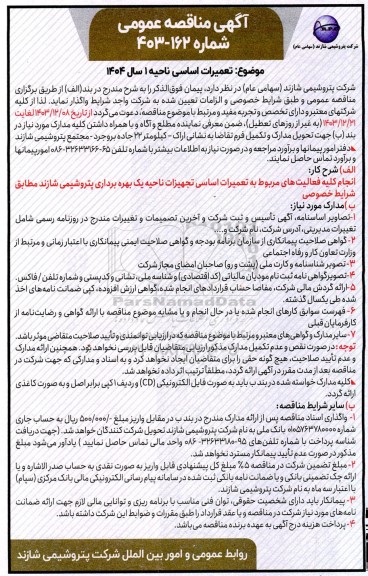 آگهی مناقصه عمومی
شماره ۱۶۲-۴۰۳
شرکت پتروشیمی شازند (سهامی عام)
موضوع: تعمیرات اساسی ناحیه ۱ سال ۱۴۰۴
شرکت پتروشیمی شازند (سهامی عام) در نظر دارد، پیمان فوق‌الذکر را به شرح مندرج در بند(الف) از طریق برگزاری
مناقصه عمومی و طبق شرایط خصوصی و الزامات تعیین شده به شرکت واجد شرایط واگذار نماید. لذا از کلیه
شرکتهای معتبر و دارای تخصص و تجربه مفید و مرتبط با موضوع مناقصه، دعوت می‌گردد از تاریخ ۱۴۰۳/۱۲/۰۸ لغایت
۱۴۰۳/۱۲/۲۱ (به غیر از روزهای تعطیل)، ضمن معرفی نماینده مطلع و آگاه و با همراه داشتن کلیه مدارک مورد نیاز در
بند (ب) جهت تحویل مدارک و تکمیل فرم تقاضا به نشانی اراک - کیلومتر ۲۲ جاده بروجرد - مجتمع پتروشیمی شازند
دفتر امور پیمانها و برآورد مراجعه و در صورت نیاز به اطلاعات بیشتر با شماره تلفن ۶۵-۳۲۶۳۳۱۶۶-۰۸۶ امور پیمانها
و برآورد تماس حاصل نمایند.
الف) شرح کار:
انجام کلیه فعالیت‌های مربوط به تعمیرات اساسی تجهیزات ناحیه یک بهره برداری پتروشیمی شازند مطابق
شرایط خصوصی
ب) مدارک مورد نیاز:
۱- تصاویر اساسنامه، آگهی تأسیس و ثبت شرکت و آخرین تصمیمات و تغییرات مندرج در روزنامه رسمی شامل
تغییرات مدیریتی، آدرس شرکت، نام شرکت و....
۲- گواهی صلاحیت پیمانکاری از سازمان برنامه بودجه و گواهی صلاحیت ایمنی پیمانکاری با اعتبار زمانی و مرتبط از
وزارت تعاون کار و رفاه اجتماعی
۳- تصویر شناسنامه و کارت ملی (پشت و رو) صاحبان امضای مجاز شرکت
۴- تصویر گواهی نامه ثبت نام مودیان مالیاتی (کد اقتصادی) و شناسه ملی، نشانی و کدپستی و شماره تلفن / فاکس.
۵- ارائه گردش مالی شرکت، مفاصا حساب قراردادهای انجام شده، گواهی ارزش افزوده، کپی ضمانت نامه‌های اخذ
شده طی یکسال گذشته.
۶- فهرست سوابق کارهای انجام شده یا در حال انجام و یا مشابه موضوع مناقصه با ارائه گواهی و رضایت‌نامه از
کارفرمایان قبلی
۷- سایر مدارک و گواهی‌های معتبر و مرتبط با موضوع مناقصه که در ارزیابی توانمندی و تأیید صلاحیت متقاضی موثر باشد.
توجه: در صورت نقص و عدم تکمیل مدارک مذکور ارزیابی متقاضیان قابل بررسی نخواهد بود. همچنین ارائه مدارک
و عدم تأیید صلاحیت، هیچ گونه حقی را برای متقاضیان ایجاد نخواهد کرد و به اسناد و مدارکی که جهت شرکت در
مناقصه بعد از مدت مقرر در آگهی ارائه گردد، مطلقاً ترتیب اثر داده نخواهد شد.
کلیه مدارک خواسته شده در بند ب باید به صورت فایل الکترونیکی (CD) و ردیف ۱ کپی برابر اصل و به صورت کاغذی
ارائه گردد.
ب) سایر شرایط مناقصه:
۱- واگذاری اسناد مناقصه پس از ارائه مدارک مندرج در بند ب در مقابل واریز مبلغ ۵۰۰/۰۰۰/- ریال به حساب جاری
شماره ۰۱۰۵۷۶۳۷۸۰۰۰۰ بانک ملی به نام شرکت پتروشیمی شازند تحویل شرکت کنندگان خواهد شد. (جهت دریافت
شناسه پرداخت با شماره تلفن‌های ۹۵-۳۲۶۳۳۱۸۰-۰۸۶ واحد مالی تماس حاصل نمایید) یادآور می‌شود مبلغ
مذکور در صورت عدم تأیید پیمانکار مسترد نخواهد شد.
۲- مبلغ تضمین شرکت در مناقصه ۵٪ مبلغ کل پیشنهادی قابل واریز به صورت نقدی به حساب صدر الاشاره و یا
ارائه چک تضمینی بانکی و یا ضمانت نامه بانکی ثبت شده در سامانه پیام رسانی الکترونیکی مالی بانک مرکزی (سپام)
با اعتبار سه ماه به نام شرکت پتروشیمی شازند.
۳- پیمانکار باید دارای شخصیت حقوقی، توان فنی مناسب با برنامه ریزی و توانایی مالی لازم جهت ارائه ضمانت
نامه‌های مورد نیاز شرکت در مناقصه و یا عقد قرارداد را طبق مقررات و ضوابط این شرکت داشته باشد.
۴- پرداخت هزینه درج آگهی به عهده برنده مناقصه می‌باشد.
روابط عمومی و امور بین الملل شرکت پتروشیمی شازند